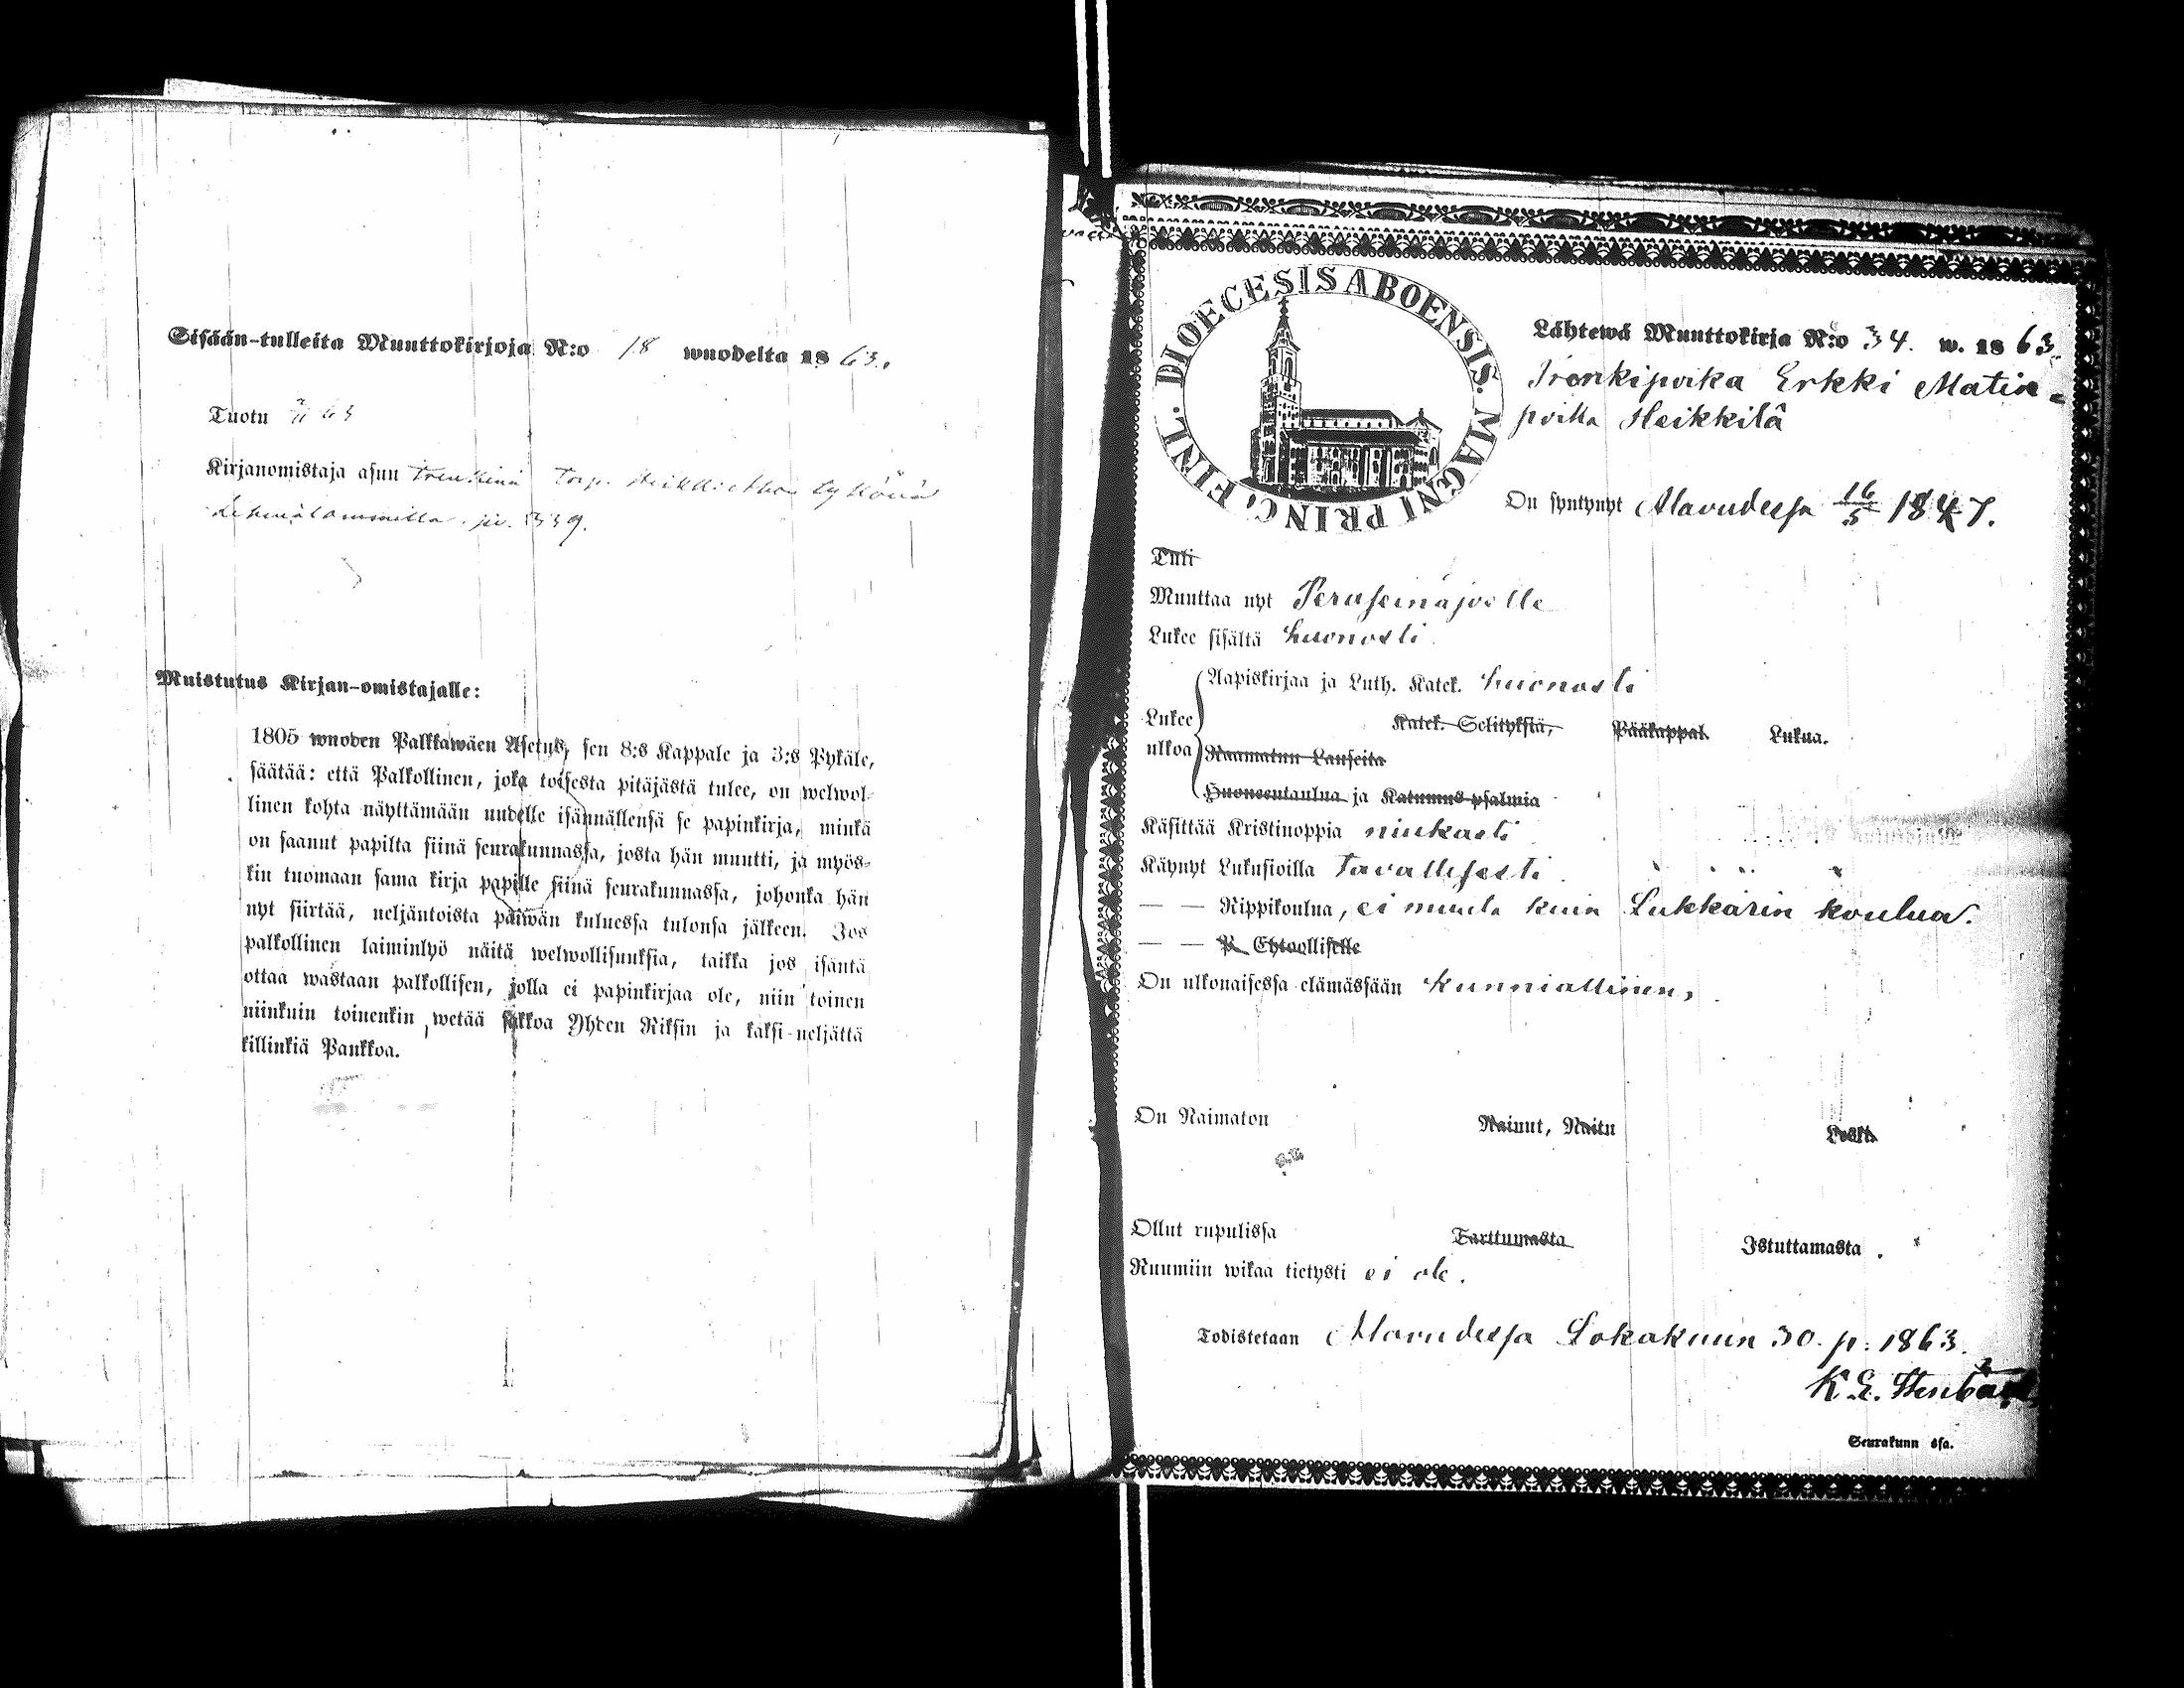 Sisään-tulleita Muuttokirjoja N:o 18 wuodelta 1863.
Tuotu 63
Kirjanomistaja asuu trenkinä Torp. tykönä
siv. 339.
Muistutus Kirjan-omistajalle:
1805 wuoden Palkkawäen Asetus, sen 8:s Kappale ja 3:s Pykäle,
säätää: että Palkollinen, joka toisesta pitäjästä tulee, on welwol-
linen kohta näyttämään uudelle isännällensä se papinkirja, minkä
on saanut papilta siinä seurakunnassa, josta hän muutti, ja myös-
kin tuomaan sama kirja papille siinä seurakunnassa, johonka hän
nyt siirtää, neljäntoista päiwän kuluessa tulonsa jälkeen. Jos
palkollinen laiminlyö näitä welwollisuuksia, taikka jos isäntä
ottaa wastaan palkollisen, jolla ei papinkirjaa ole, niin toinen
niinkuin toinenkin wetää sakkoa Yhden Riksin ja kaksi-neljättä
killinkiä Pankkoa.
DIOECESIS ABOENSIS. MAGNI PRINC. FINL.
Lähtewä Muuttokirja N:o 34. w. 1863.
Trenkipoika Erkki Matin-
poika Heikkilä
On syntynyt Alavudessa 16/5 1847.
Tuli
Muuttaa nyt Peräseinäjoelle
Lukee sisältä huonosti
Aapiskirjaa ja Luth. Katek. huonosti
Lukee ulkoa Katek. Selityksiä, Pääkappal. Lukua.
Raamatun Lauseita
Huoneentaulua ja Katumus-psalmia
Käsittää Kristinoppia niukasti
Käynyt Lukusioilla tavallisesti
— — Rippikoulua, ei muuta kuin Lukkarin koulua.
— — P. Ehtoollisella
On ulkonaisessa elämässään kunniallinen,
On Naimaton Nainut, Naitu Leski.
Ollut rupulissa Tarttumasta Istuttamasta.
Ruumiin wikaa tietysti ei ole.
Todistetaan Alavudessa Lokakuun 30. p: 1863.
K. E. Stenbäck
Seurakunn ssa.